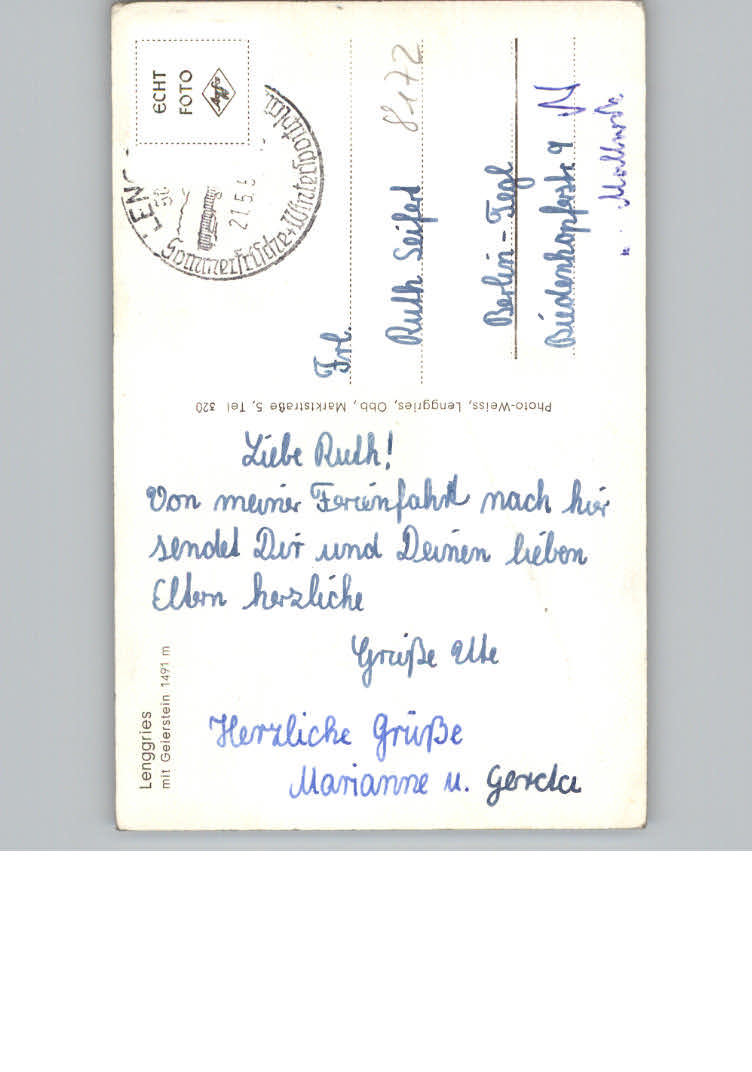 Lenggries
mit Geierstein 1491 m
Liebe Ruth!
Von meiner Ferienfahrt nach hier
sendet Dir und Deinen lieben
Eltern herzliche
Grüße Ute
Herzliche Grüße
Marianne u. Gerda
Photo-Weiss, Lenggries, Obb, Marktstraße 5, Tel 320
ECHT
FOTO
Agfa
LENG
21.5.
Sommerfrische + Wintersportplatz
8172
Frl.
Ruth Seifert
Berlin - Tegel
Biedenkopferstr. 9